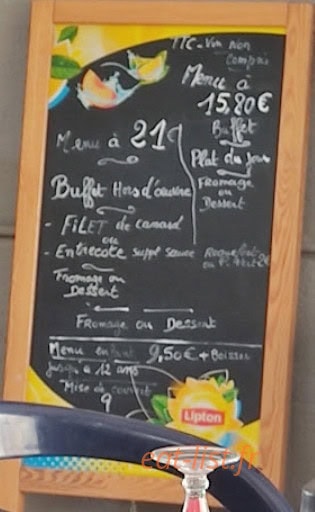 TTC - Vin non
Compris
Menu à
15,80€
Buffet
Plat du jour
Fromage
ou
Dessert
Menu à 21€
Buffet Hors d'oeuvre
- FiLET de canard
ou
- Entrecote suppl sauce Roquefort
ou
Fromage ou
Dessert
Fromage ou Dessert
Menu enfant 9,50€ + Boisson
jusqu'a 12 ans
Mise de
9
Lipton
eat-list.fr